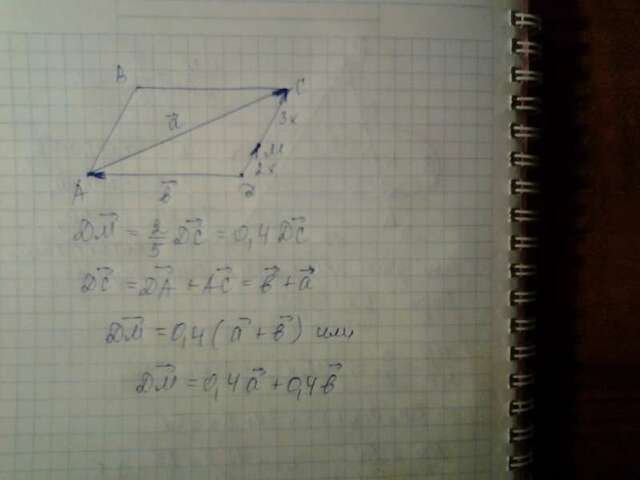 B
C
a⃗
3x
M
2x
A
b⃗
D
DM⃗ = 2/5 DC⃗ = 0,4 DC⃗
DC⃗ = DA⃗ + AC⃗ = b⃗ + a⃗
DM⃗ = 0,4 ( a⃗ + b⃗ ) или
DM⃗ = 0,4 a⃗ + 0,4 b⃗